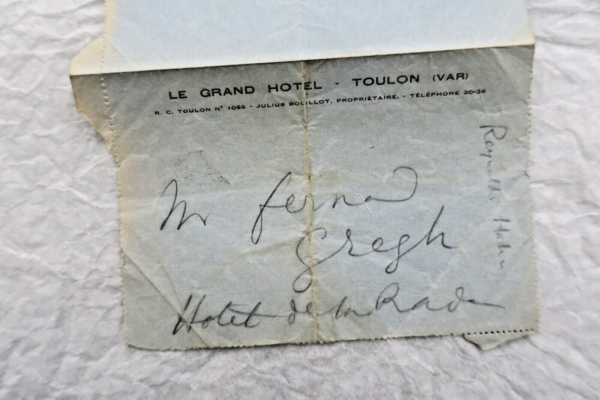 LE GRAND HOTEL - TOULON (VAR)
R. C. TOULON N° 1066 - JULIUS BOUILLOT, PROPRIÉTAIRE. - TÉLÉPHONE 20-36
Mr fernad
Gregh
Hotel de la Rade
Reynaldo Hahn